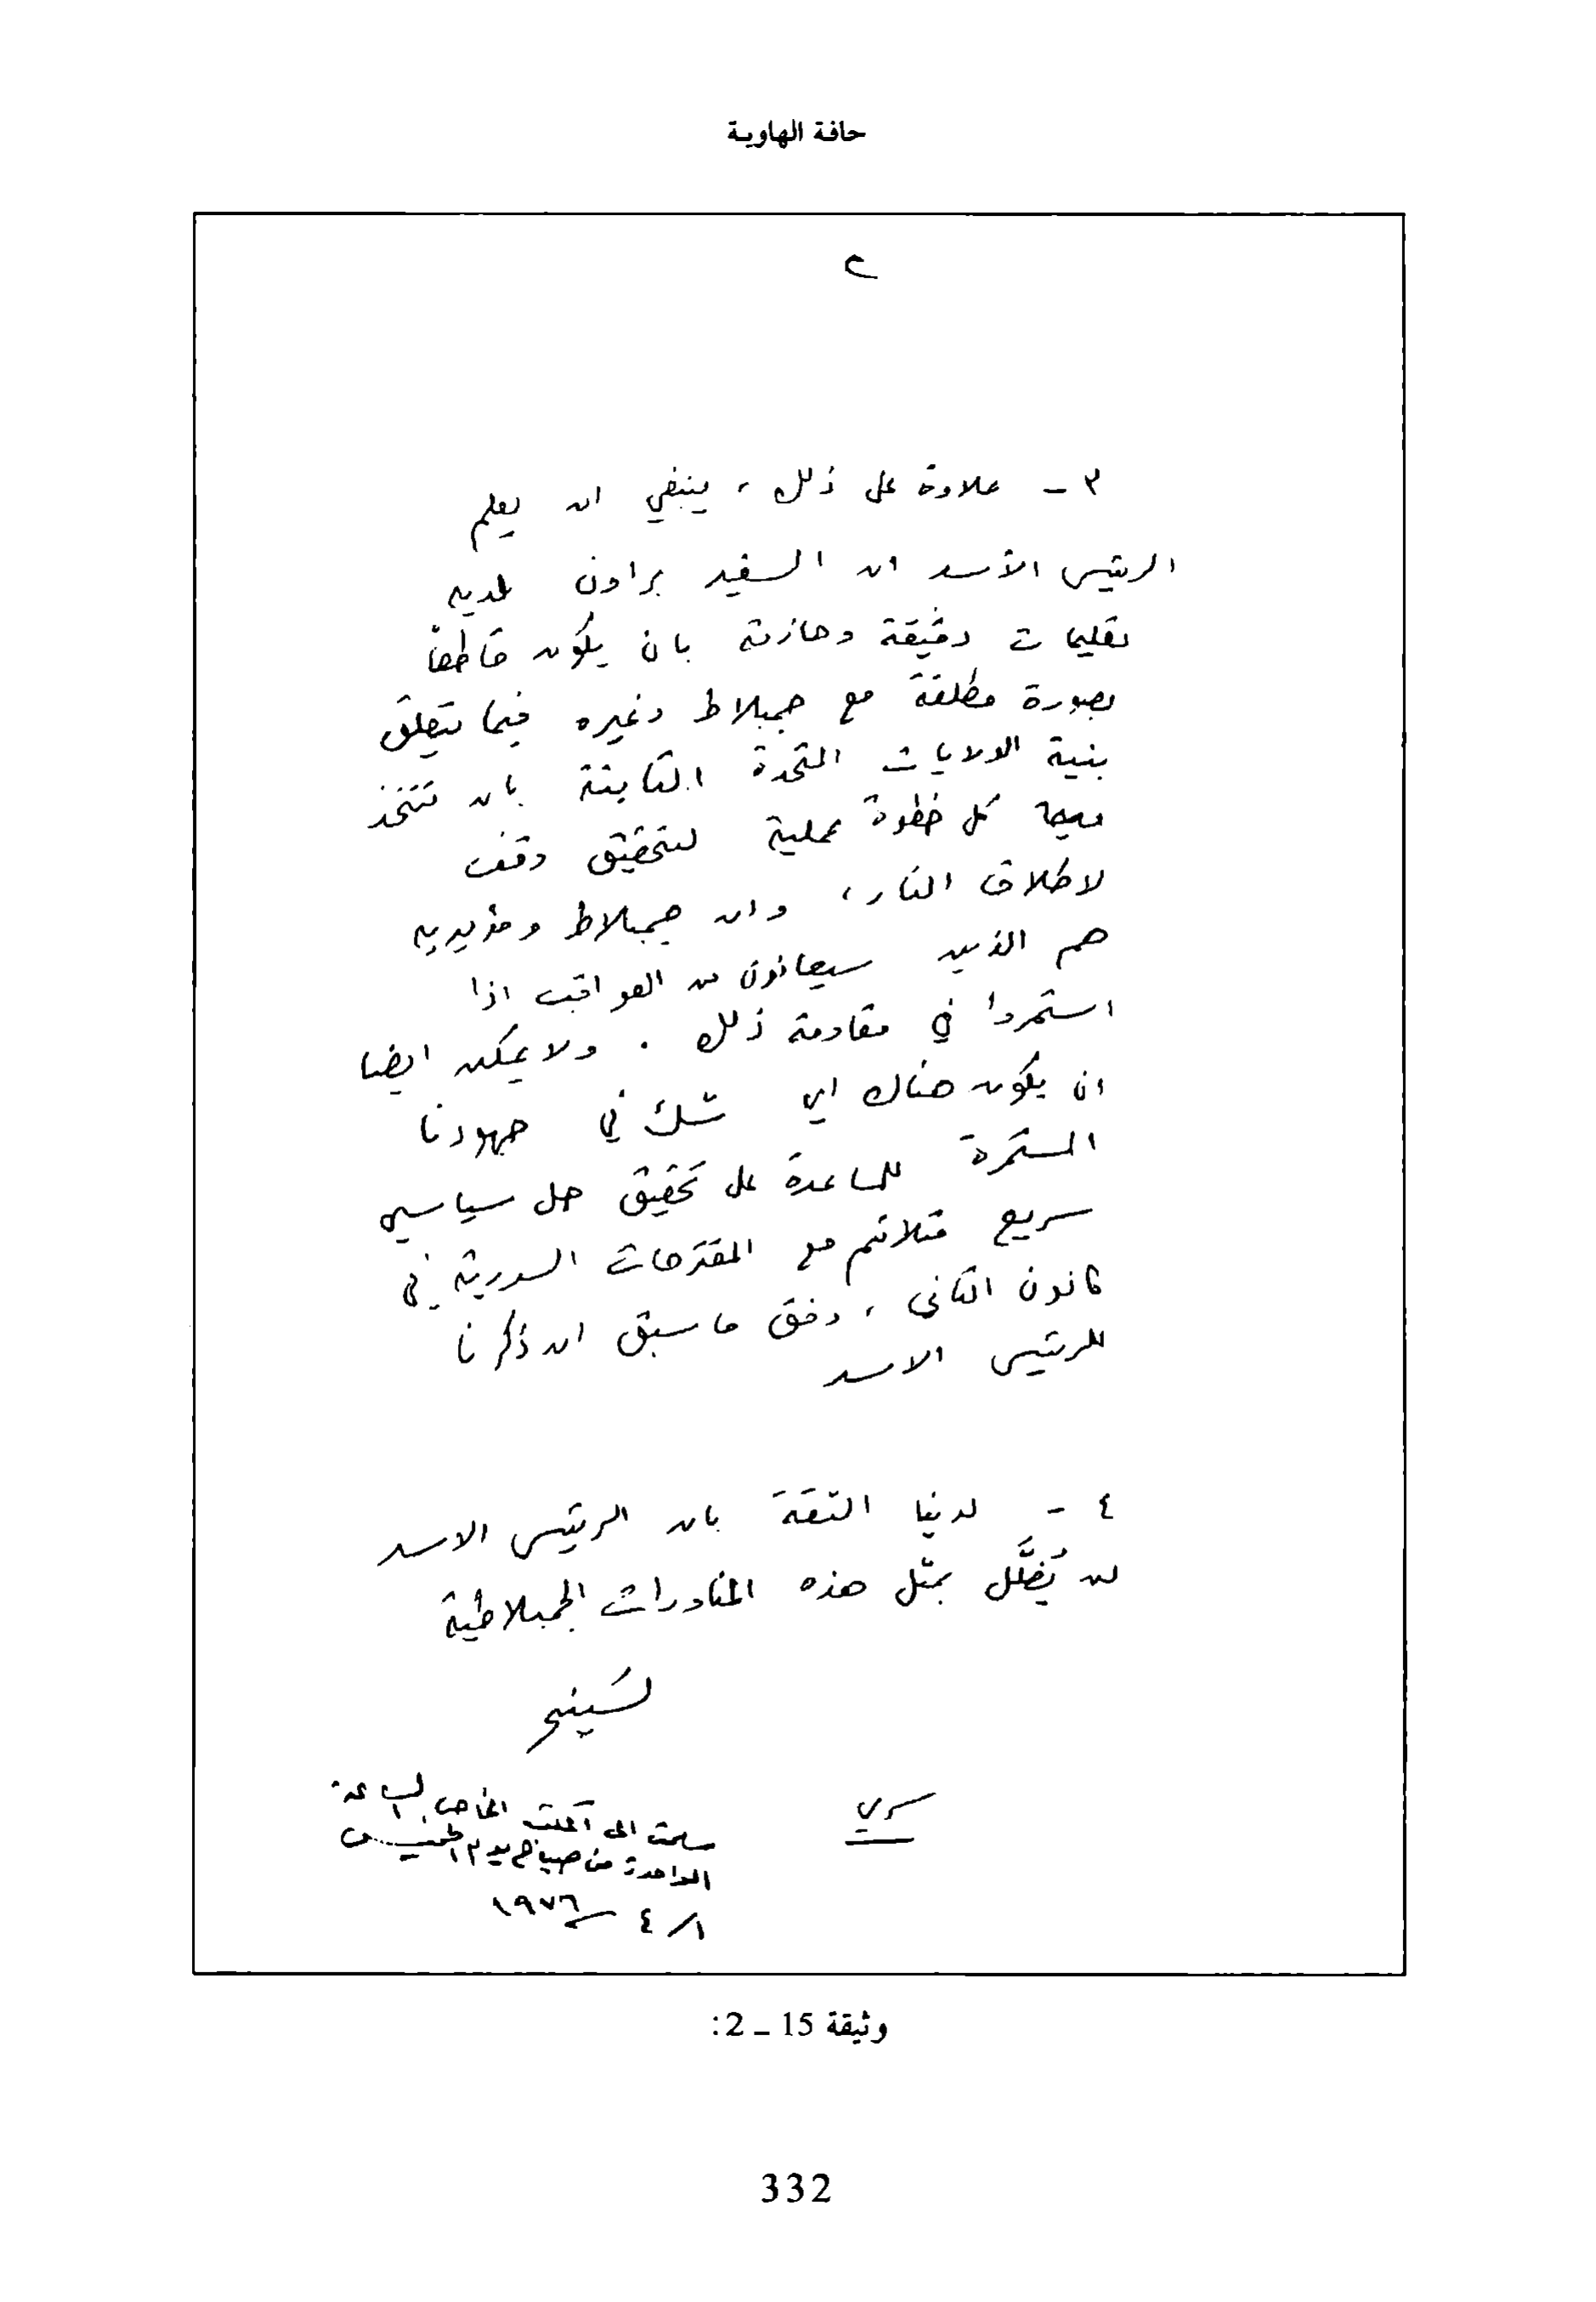 حافة الهاوية
٢
٣ - علاوة على ذلك ، ينبغي ان يعلم
الرئيس الأسد ان السفير براون لديه
تعليمات دقيقة وحازمة بان يكون قاطعاً
بصورة مطلقة مع جمبلاط وغيره فيما يتعلق
بنية الولايات المتحدة الثابتة بان تتخذ
كل خطوة عملية لتحقيق وقف
لاطلاق النار ، وان جمبلاط ومؤيديه
هم الذين سيعانون من العواقب اذا
استمروا في مقاومة ذلك . ولا يمكن ايضا
ان يكون هناك اي شك في جهودنا
المستمرة للمساعدة على تحقيق حل سياسي
سريع متلائم مع المقترحات السورية في
كانون الثاني ، وفق ما سبق ان ذكرنا
للرئيس الاسد
٤ - لدينا الثقة بان الرئيس الاسد
لن يُضلَّل بمثل هذه المناورات الجمبلاطية
سري
سلمت الى المكتب الخاص الساعة
الواحدة من صباح يوم الخميس
١/ ٤ / ١٩٧٦
وثيقة 15 ــ 2:
332